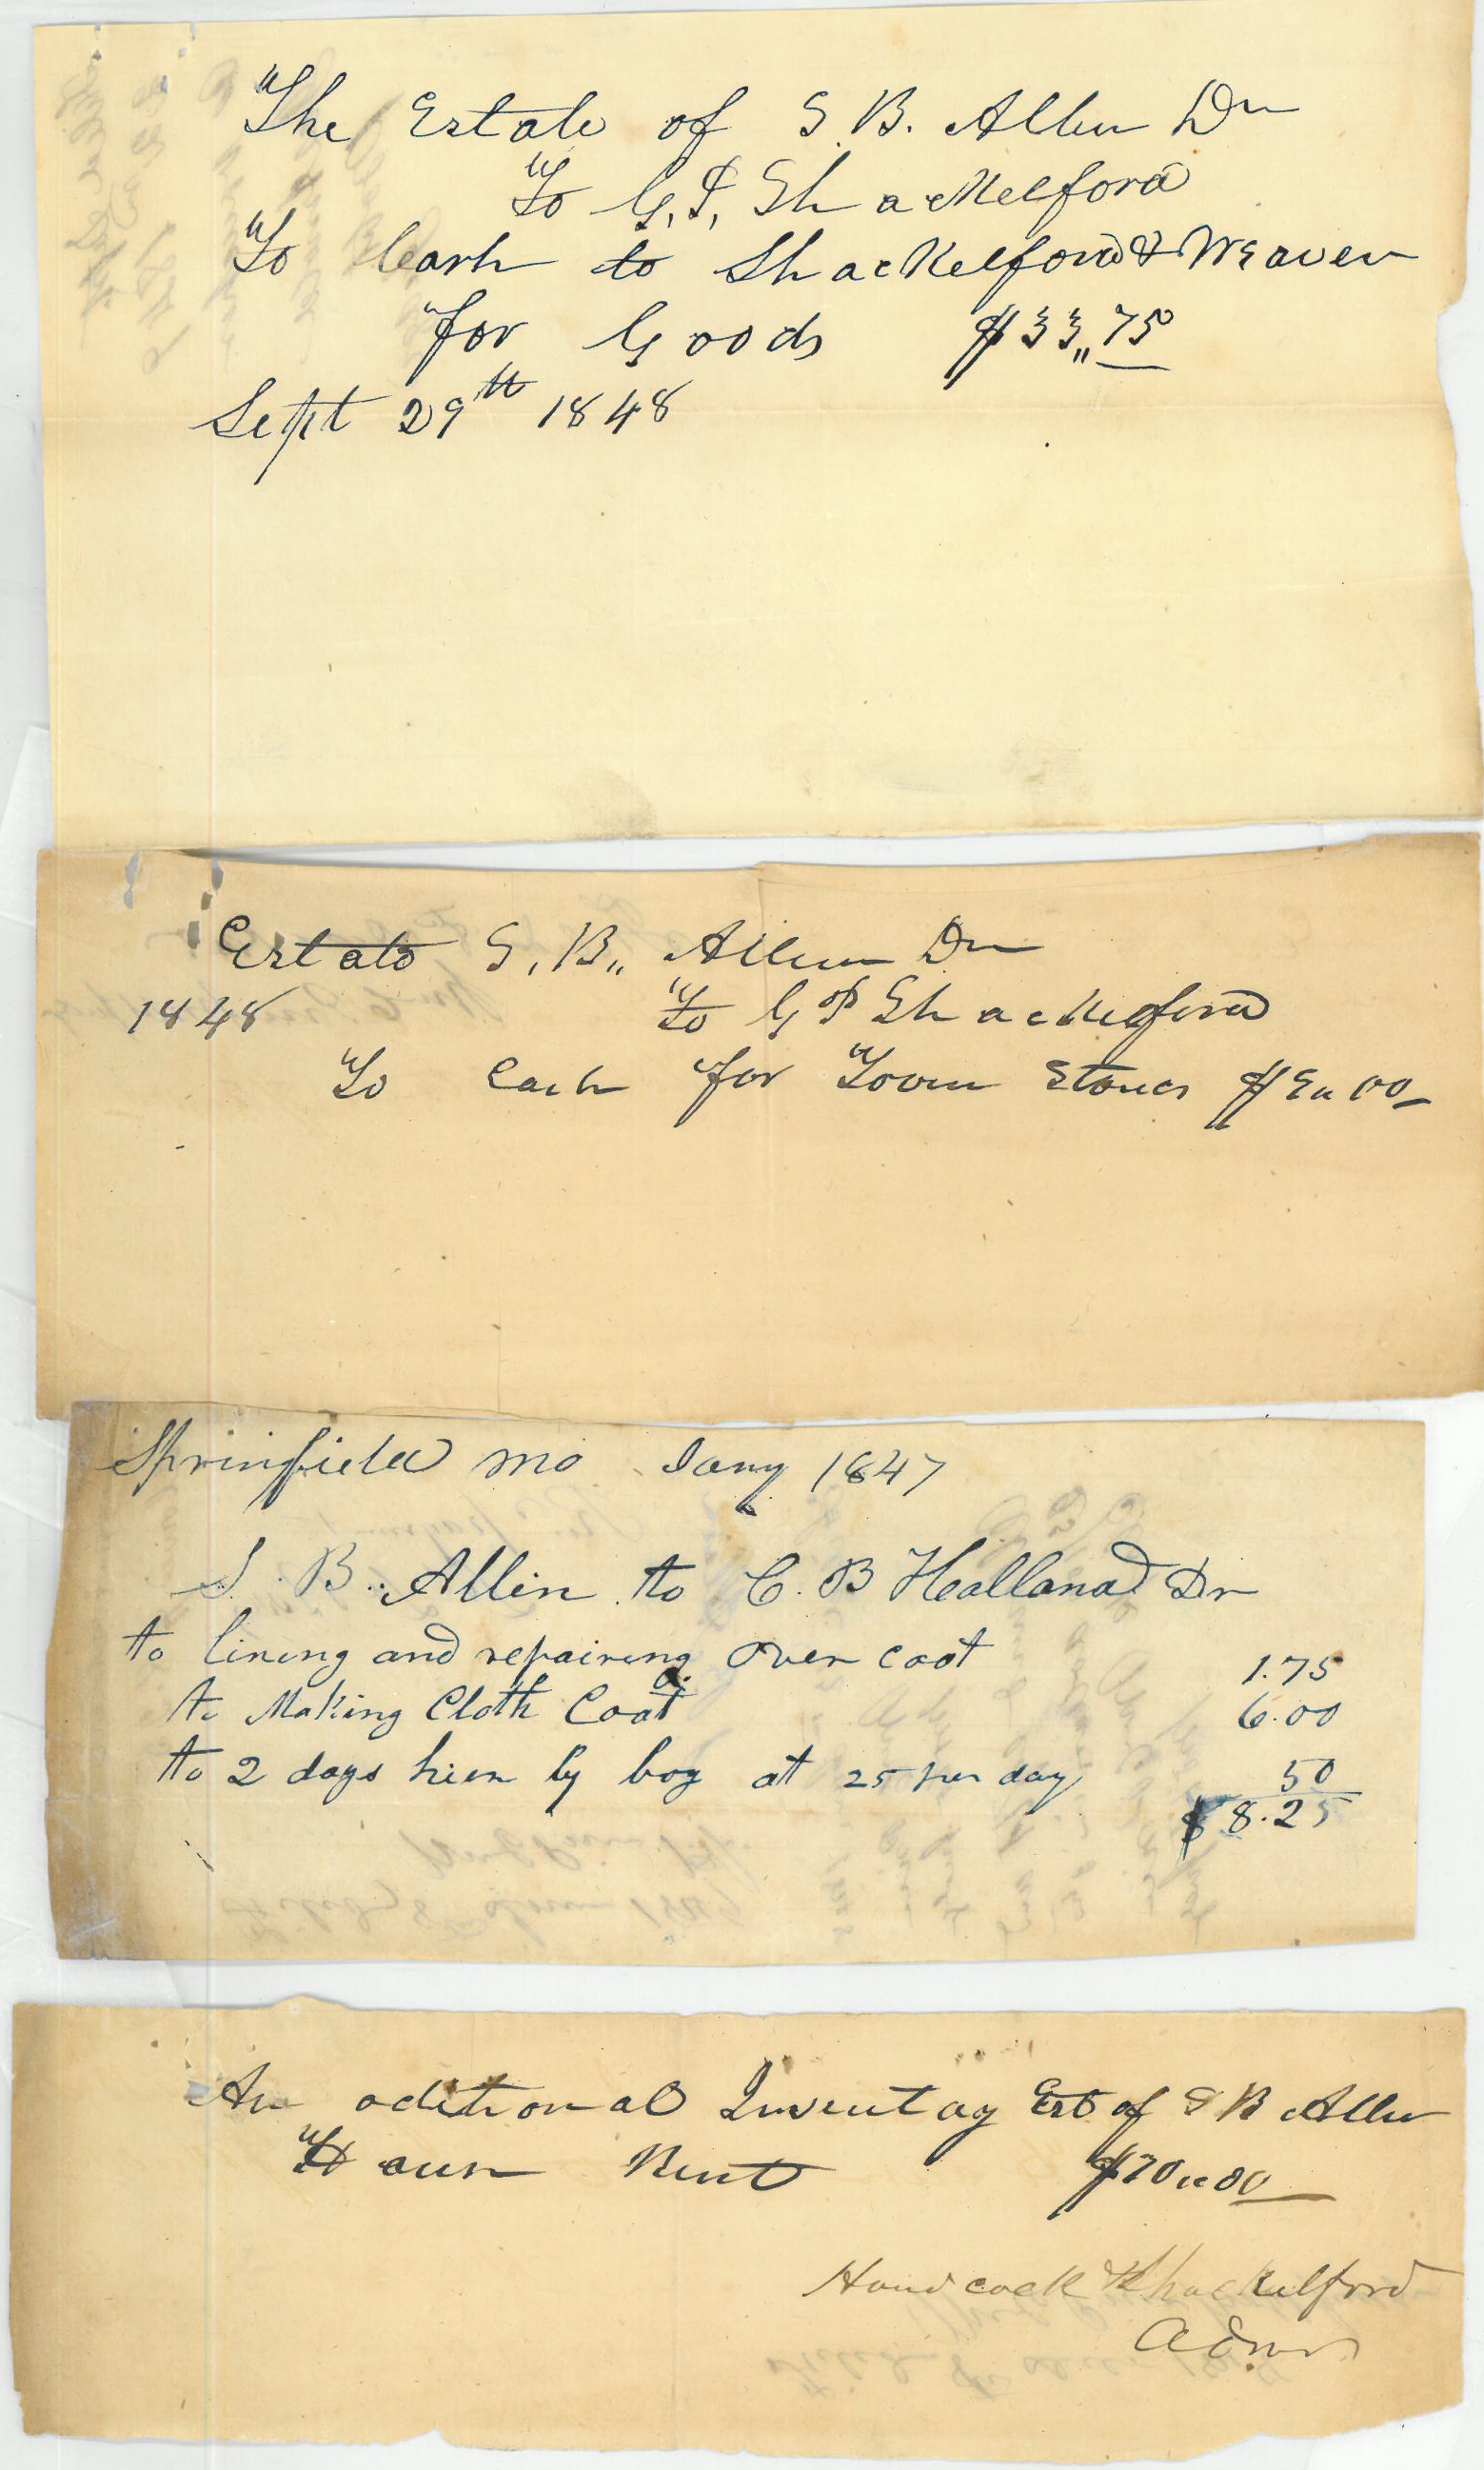 The Estate of S. B. Allen Dr
To G. P. Shackelford
To Cash to Shackelford & Weaver
for Goods $33,,75
Sept 29th 1848
Estate S, B,, Allen Dr
1848 To G P Shackelford
To Cash for Toom Stones $ 00
Springfield Mo Jany 1847
S. B. Allen to C. B Holland Dr
to lining and repairing over coat 1.75
to Making Cloth Coat 6.00
to 2 days hier by boy at 25 per day 50
$8.25
An aditional Inventoy Est of S B Allen
House Rent $70,,00
Handcock & Shackelford
Admrs